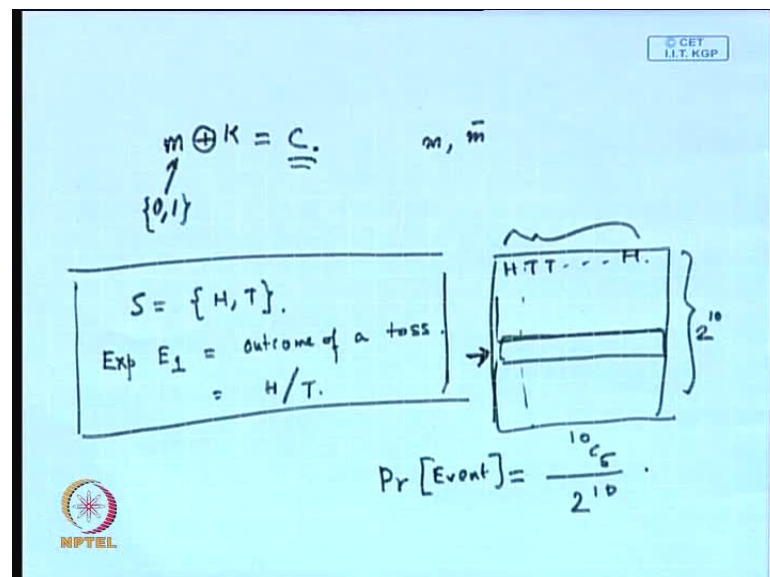 © CET
I.I.T. KGP
m ⊕ K = C.
m, m̄
{0,1}
S = {H, T}.
Exp E1 = outcome of a toss.
= H/T.
H T T - - - - H.
2^10
Pr [Event] = 10C5 / 2^10 .
NPTEL